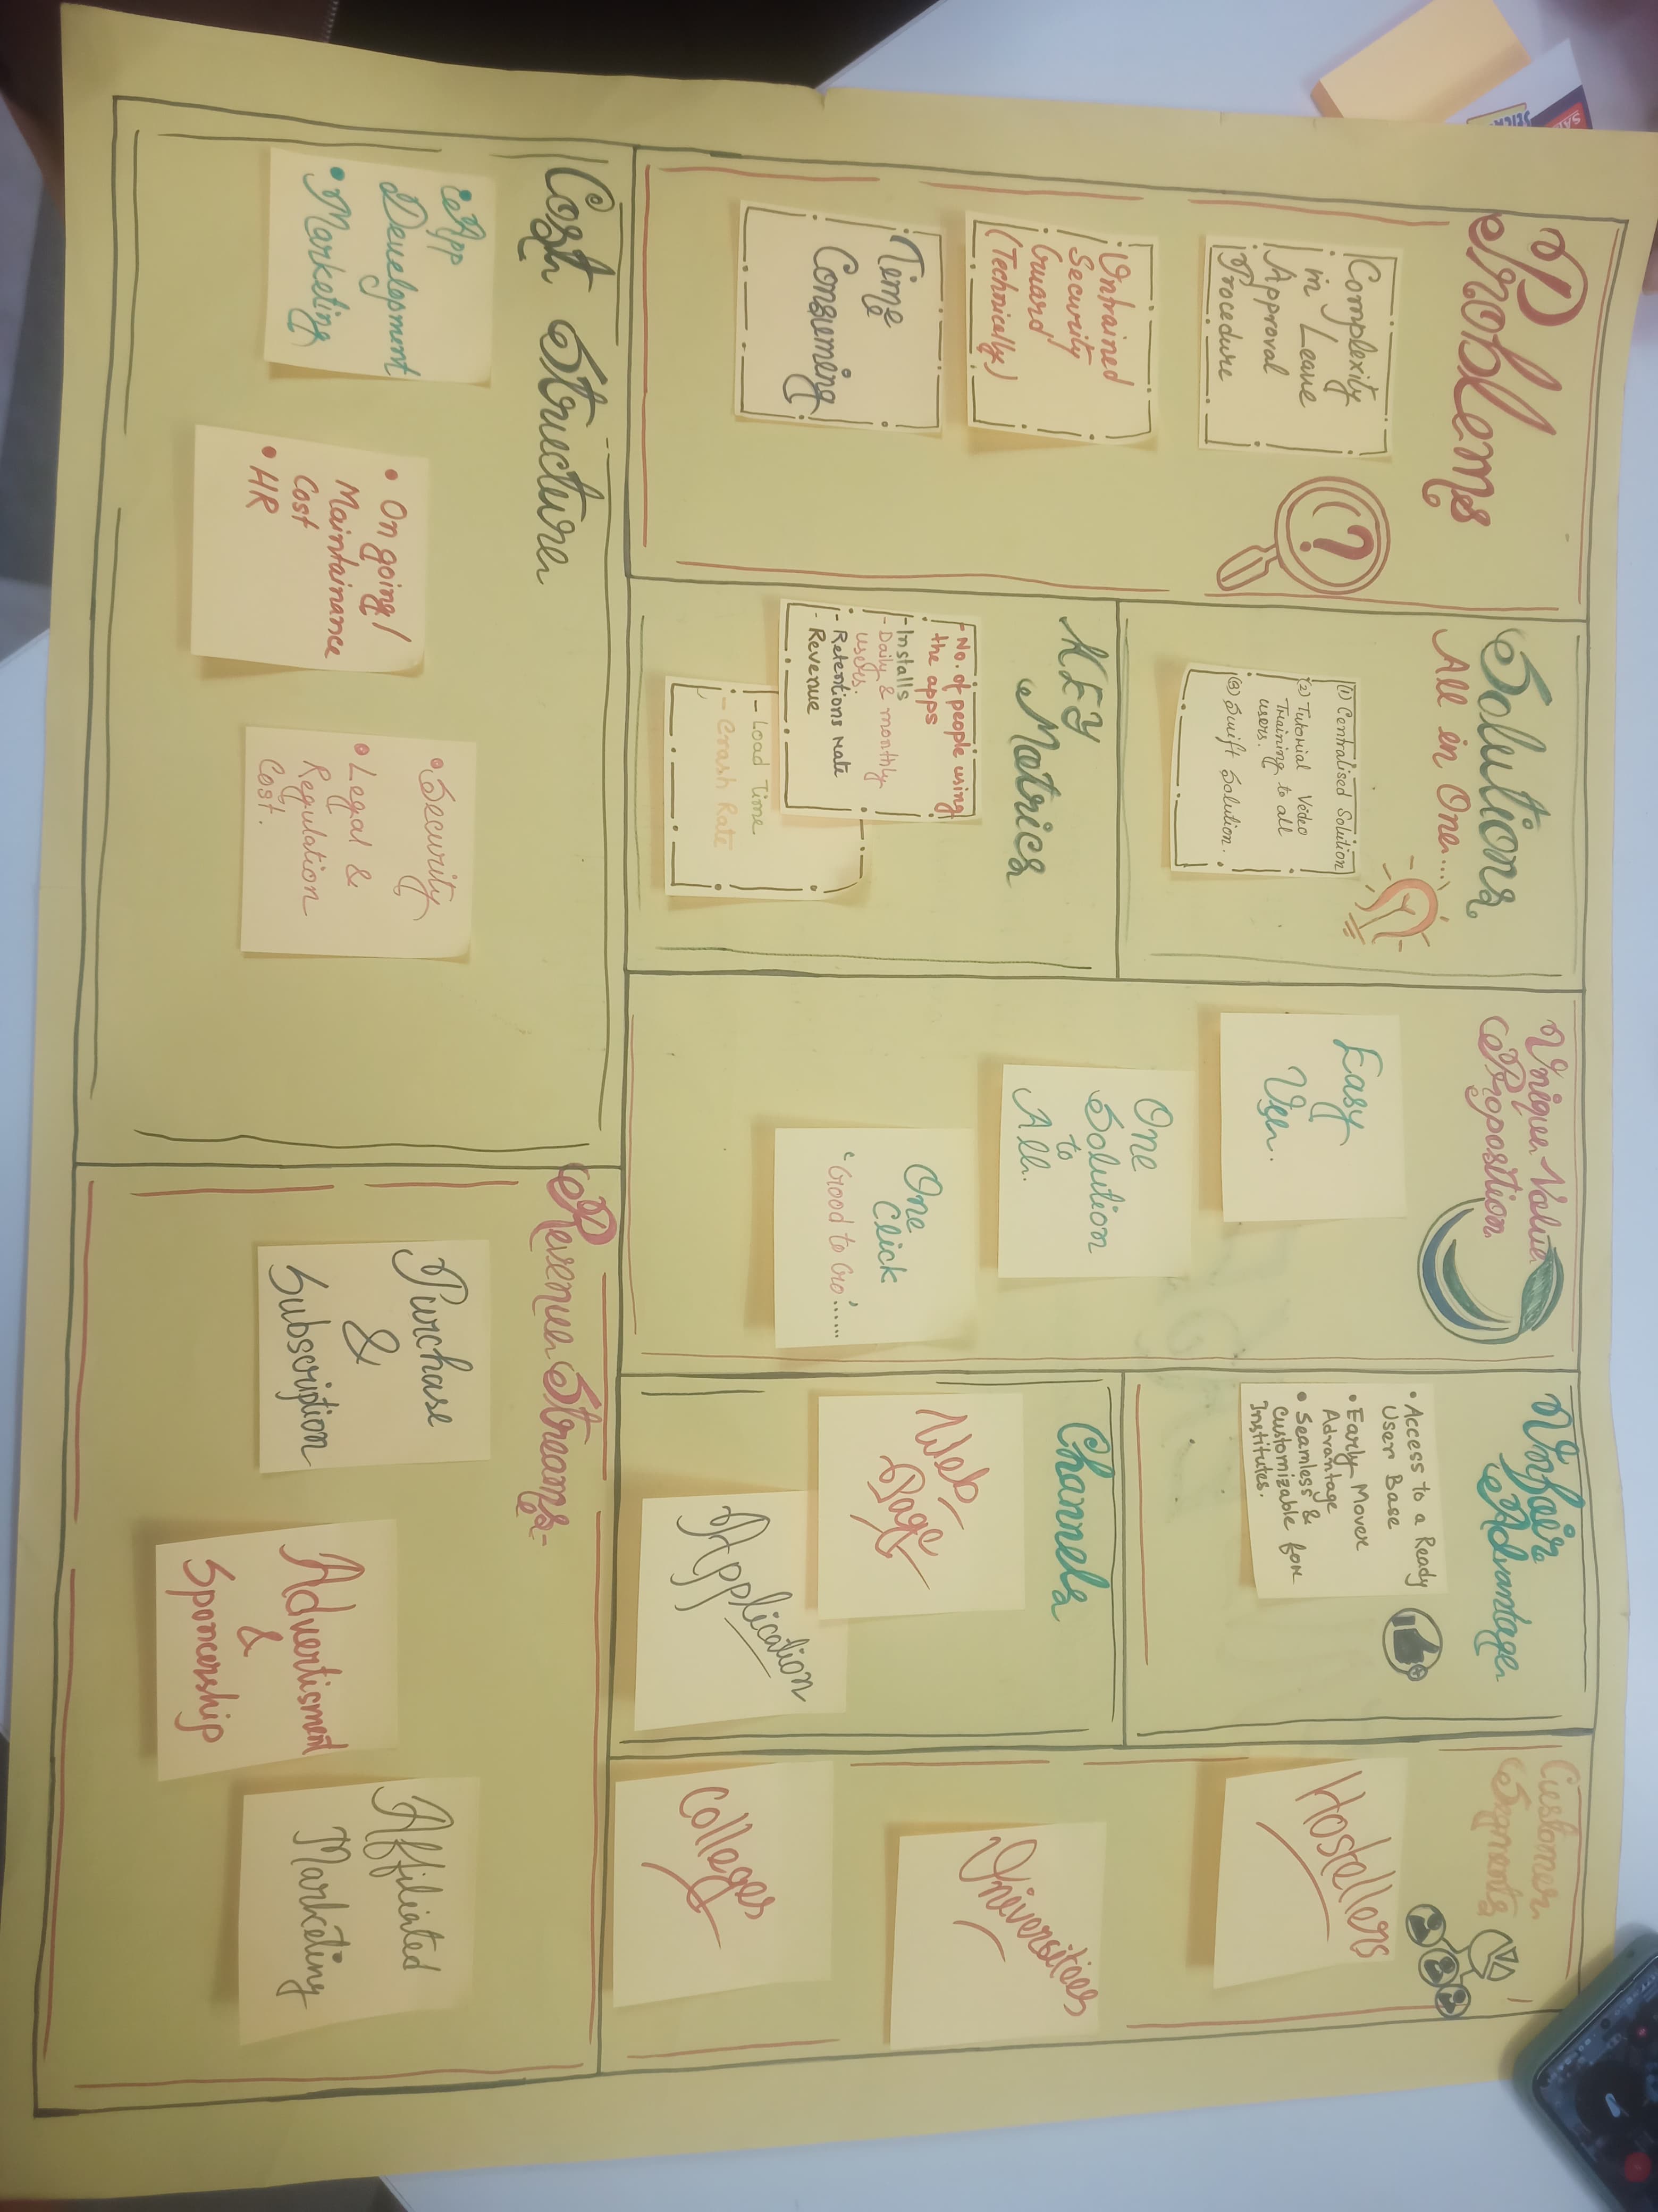 Problems
Complexity
in Leave
Approval
Procedure
Untrained
Security
Guard
(Technically)
Time
Consuming
Solutions
All in One...
(1) Centralised Solution
(2) Tutorial Video
Training to all
users.
(3) Swift Solution.
KEY
Metrics
- No. of people using
the apps
- Installs
- Daily & monthly
users.
- Retentions rate
- Revenue
- Load Time
- Crash Rate
Unique Value
Proposition
Easy
User.
One
Solution
to
All.
One
Click
'Good to Go'.....
Unfair
Advantage
• Access to a Ready
User Base
• Early-Mover
Advantage
• Seamless &
Customizable for
Institutes.
Channels
Web-
Page
Application
Customer
Segments
Hostellers
Universities
Colleges
Cost Structure
• App
Development
• Marketing
• On going/
Maintainance
Cost
• HR
• Security
• Legal &
Regulation
Cost.
Revenue Streams-
Purchase
&
Subscription
Advertisment
&
Sponcership
Affiliated
Marketing